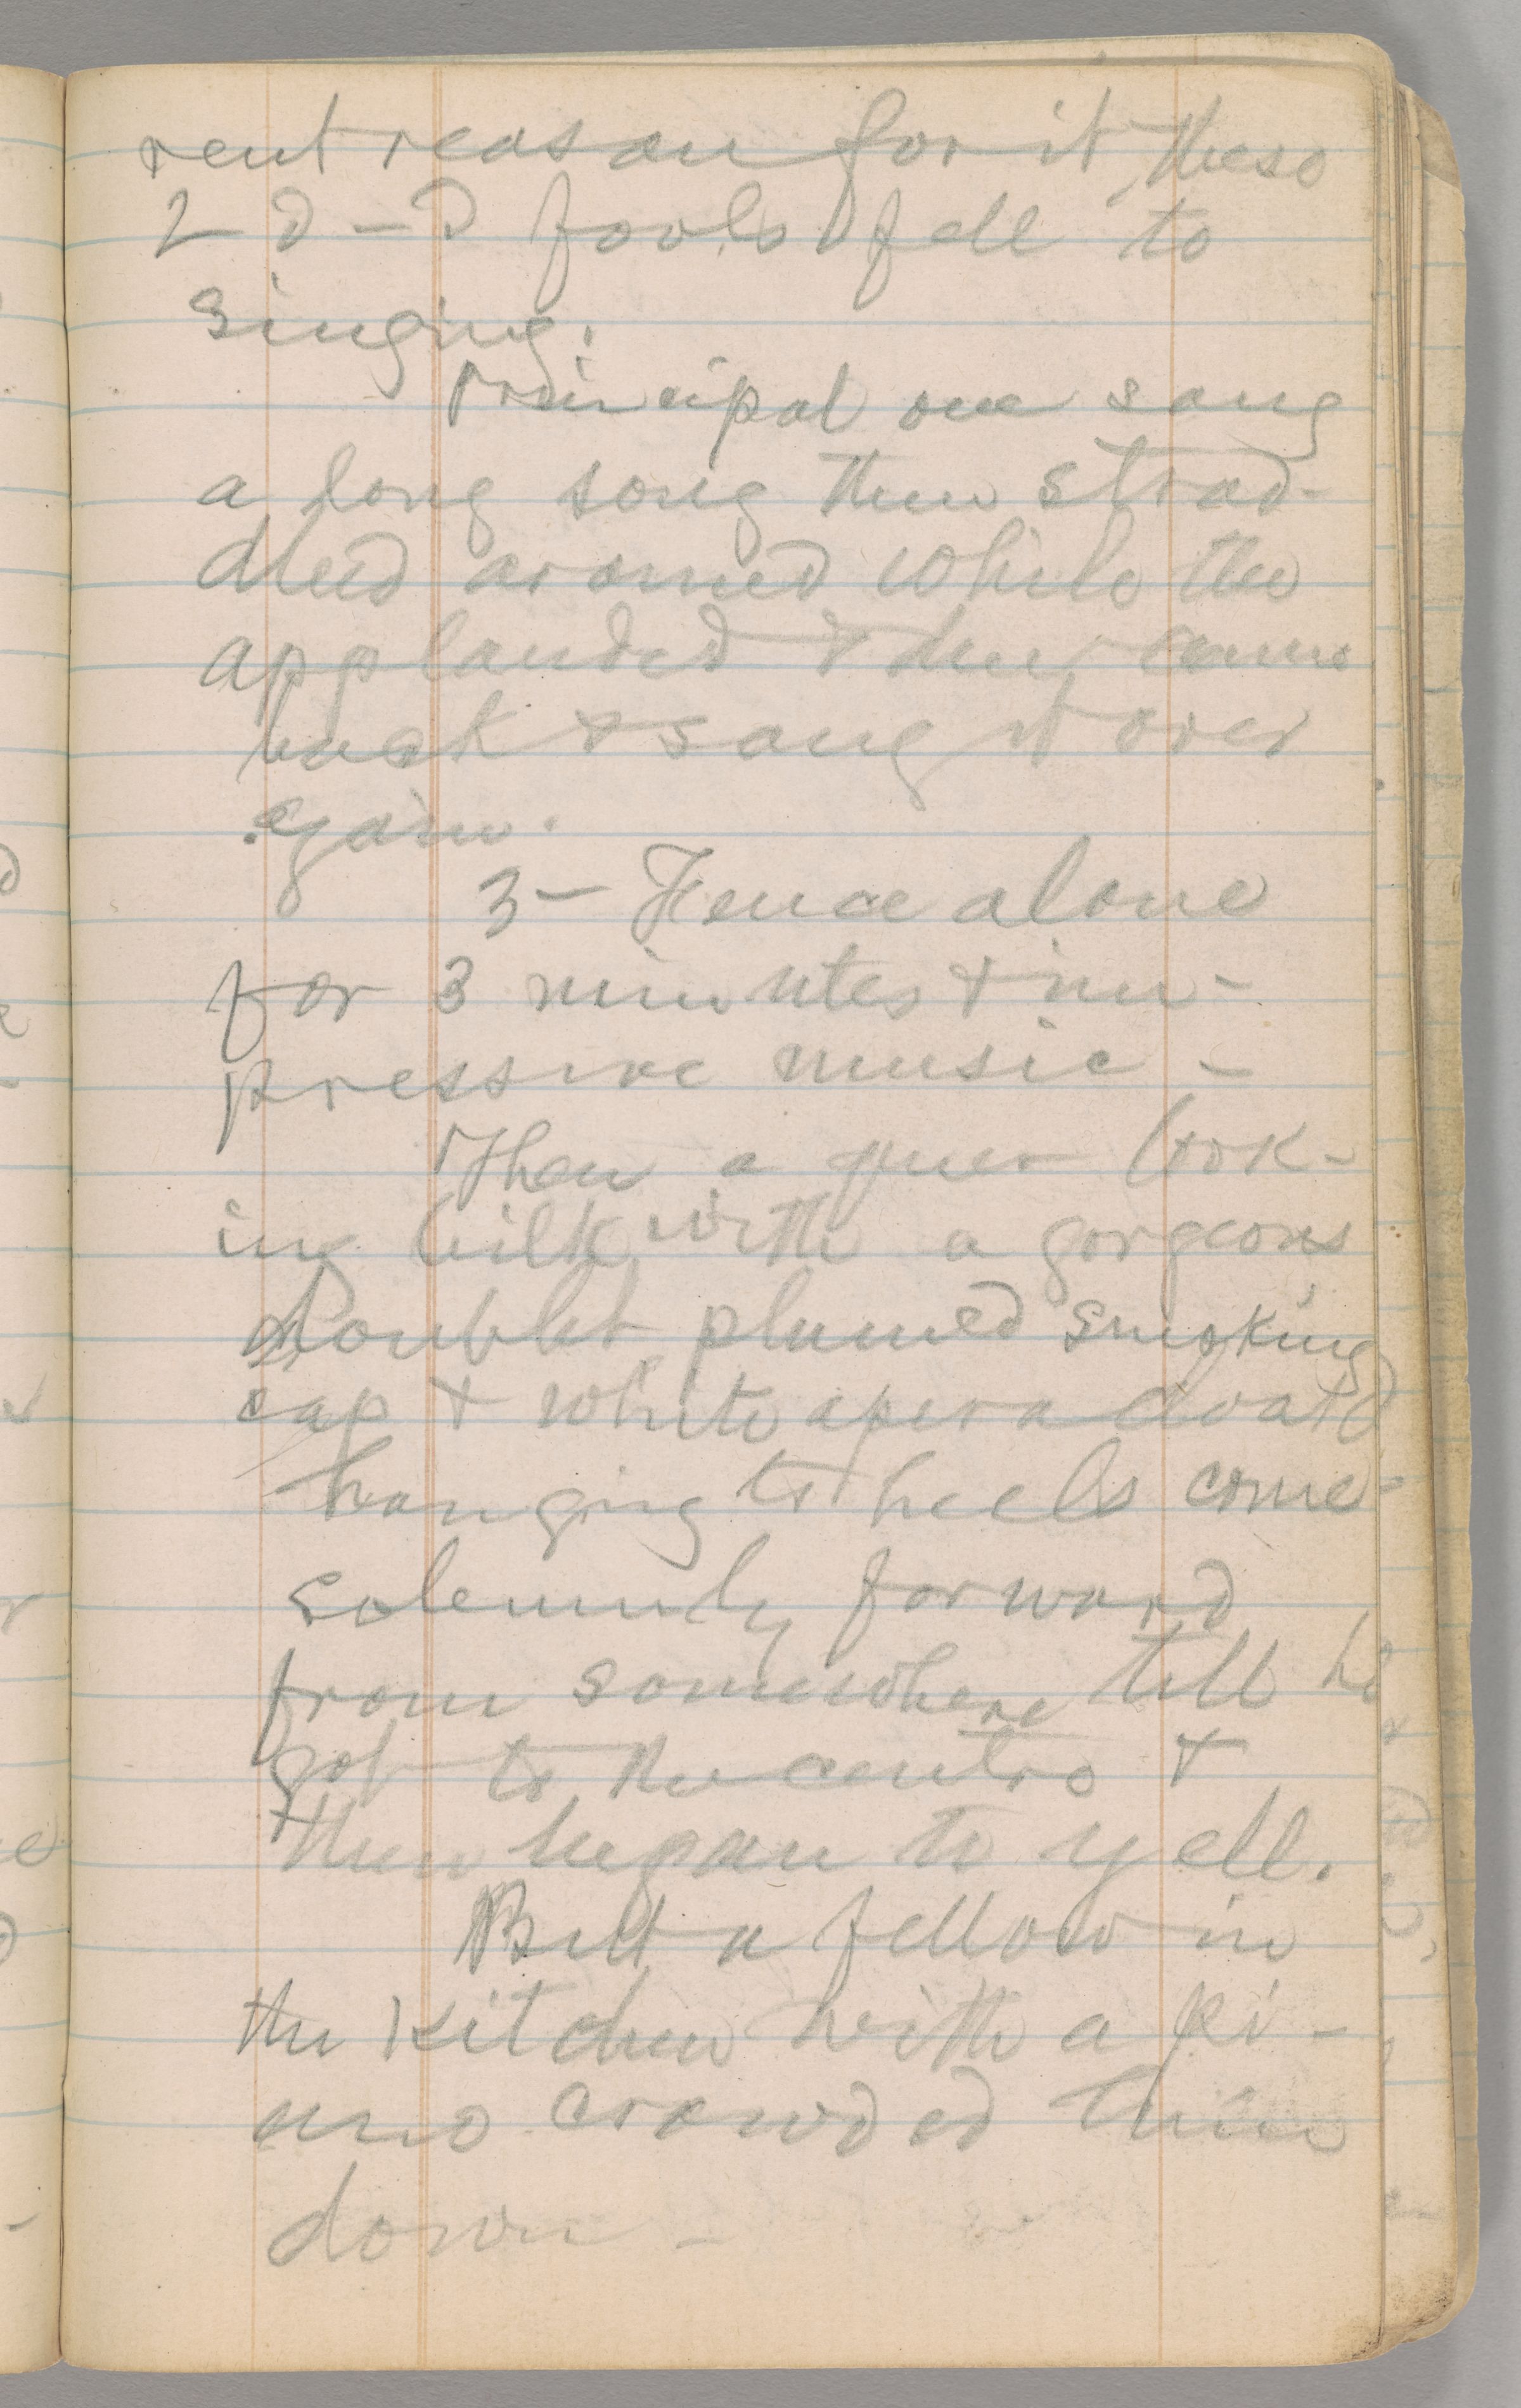 rent reason for it these
2 d–d fools fell to
singing.
Principal one sang
a long song then strad-
dled around while the
applauded & then came
back & sang it over
again.
3 – Fence alone
for 3 minutes & im-
pressive music –
Then a queer look-
ing bilk with a gorgeous
doublet plumed smoking
cap & white opera cloak
hanging to heels come
solemnly forward
from somewhere till he
got to the centre &
then began to yell.
But a fellow in
the kitchen with a pi-
ano crowded him
down –